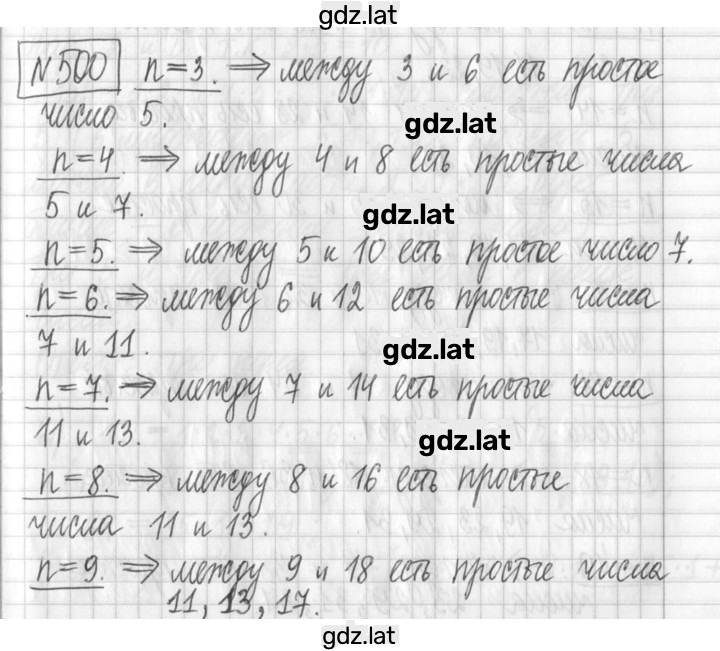 gdz.lat
N500 n=3. ⟹ между 3 и 6 есть простое
число 5.
gdz.lat
n=4. ⟹ между 4 и 8 есть простые числа
5 и 7.
gdz.lat
n=5. ⟹ между 5 и 10 есть простое число 7.
n=6. ⟹ между 6 и 12 есть простые числа
7 и 11.
gdz.lat
n=7. ⟹ между 7 и 14 есть простые числа
11 и 13.
gdz.lat
n=8. ⟹ между 8 и 16 есть простые
числа 11 и 13.
n=9. ⟹ между 9 и 18 есть простые числа
11, 13, 17.
gdz.lat